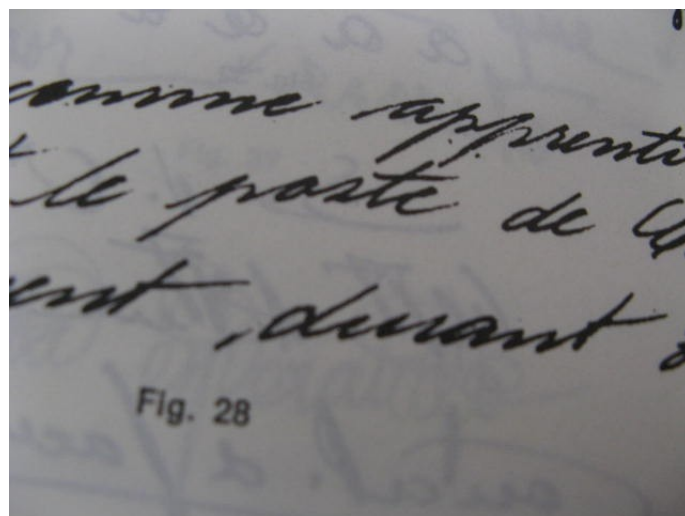 comme apprenti
le poste de
ent, durant
Fig. 28